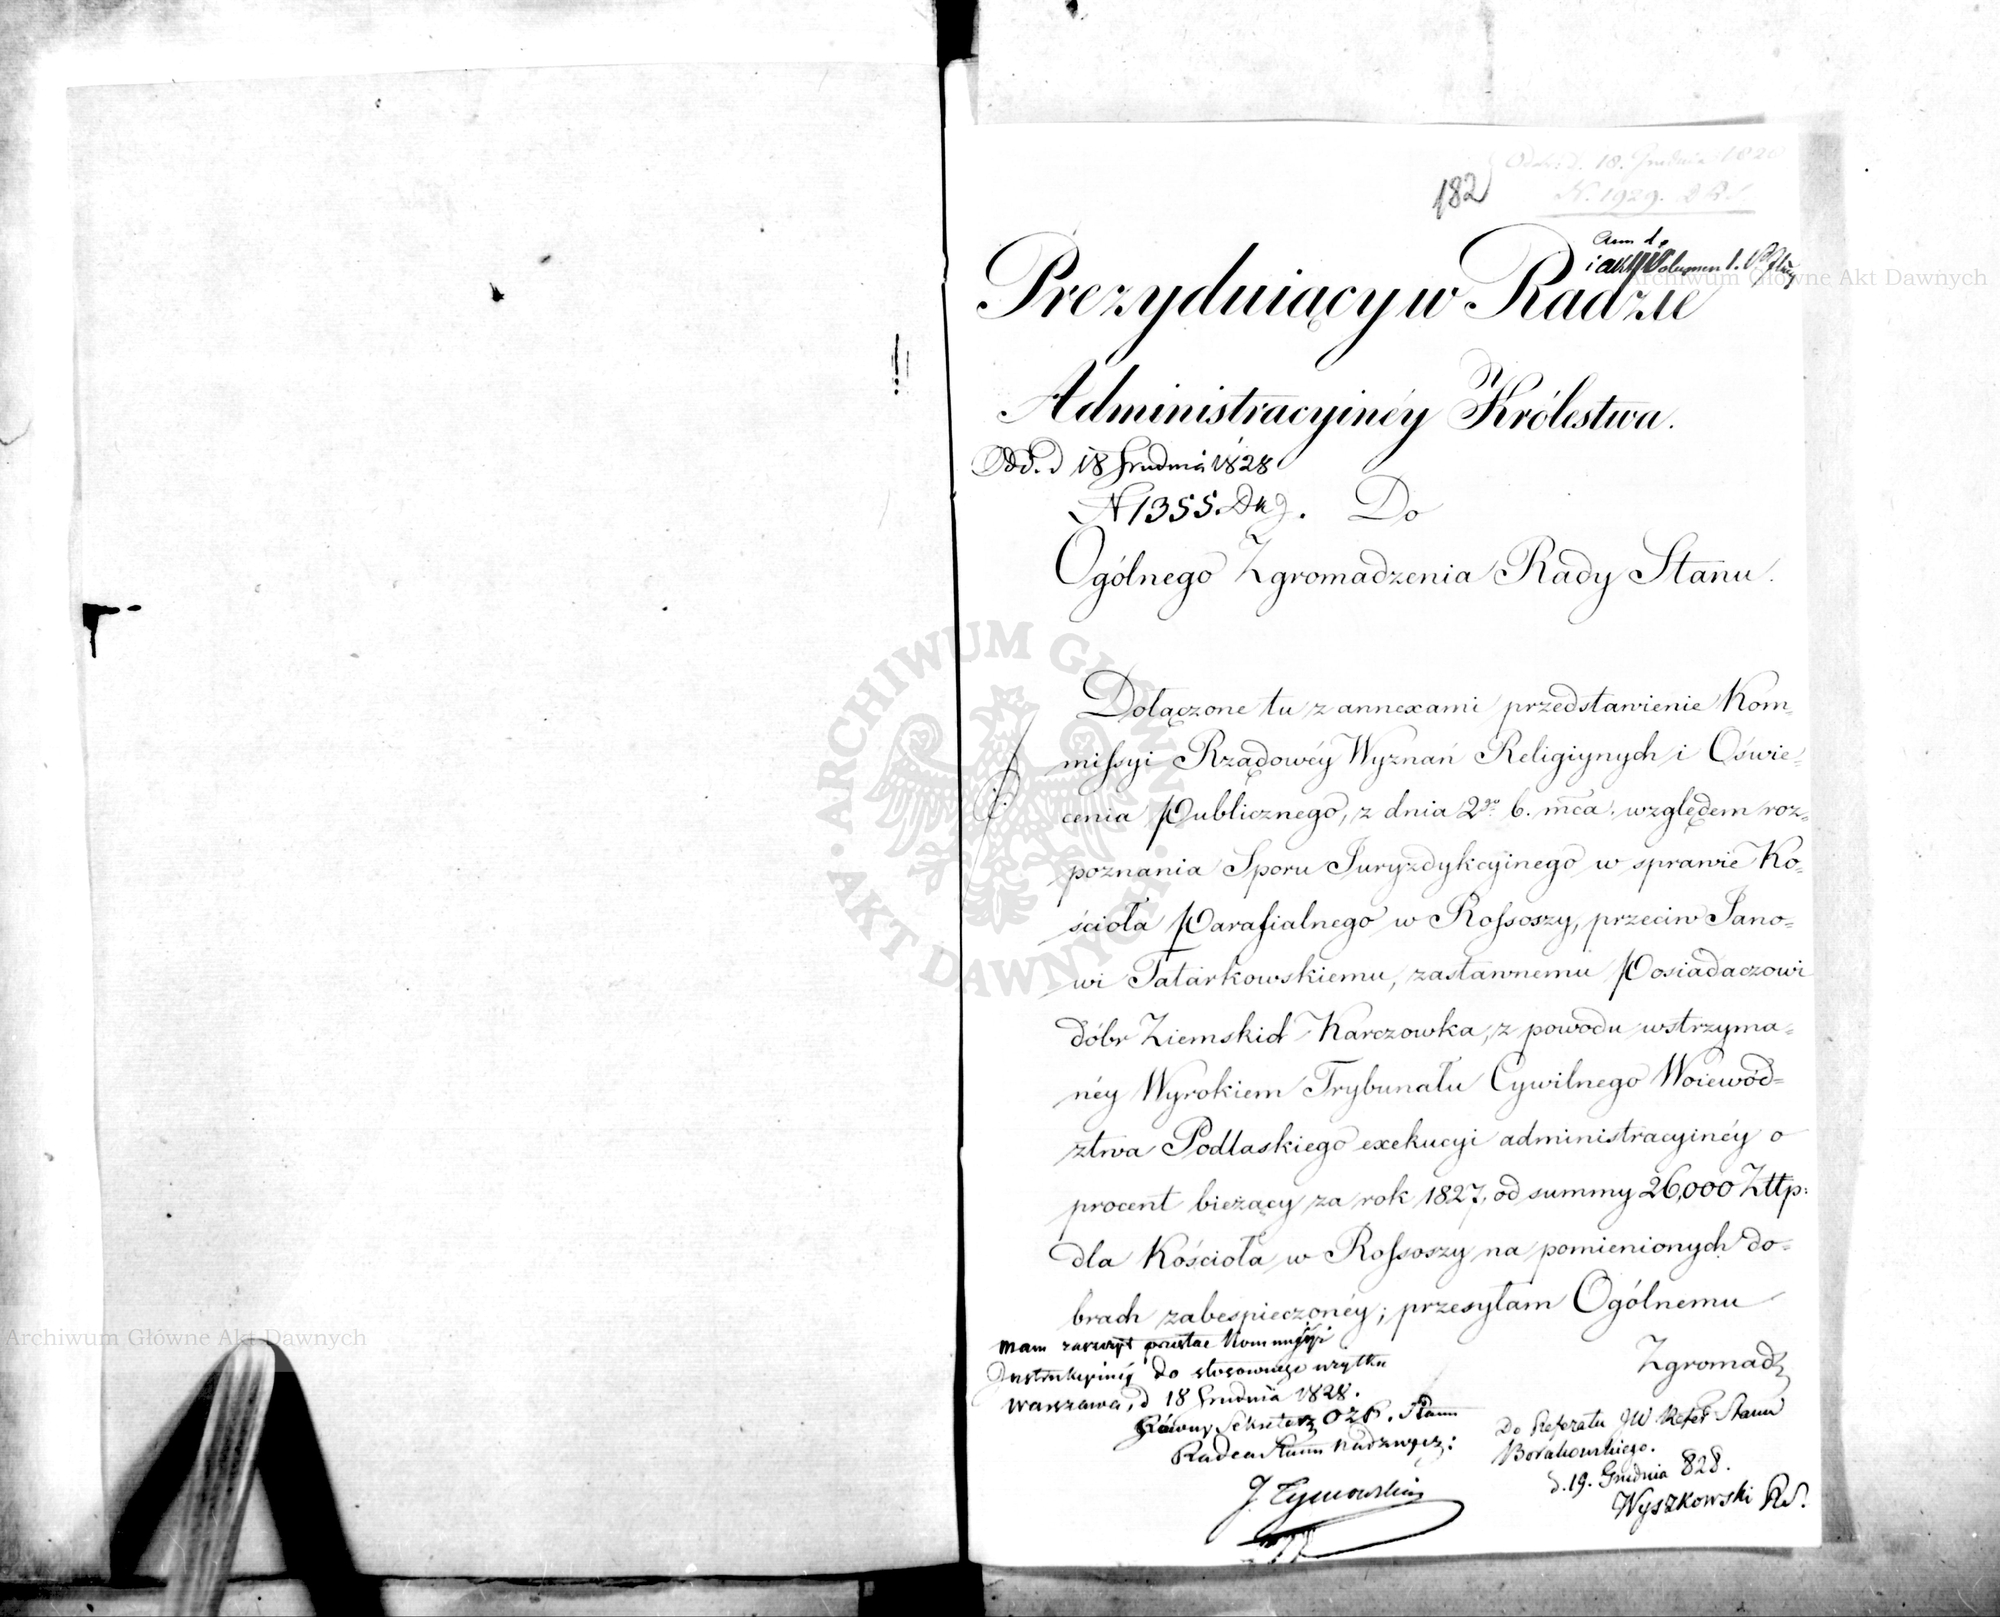 182
Odeb: d. 18. Grudnia 1828
N. 1929.
Prezyduiący w Radzie
Administracyinéy Królestwa.
Odd. d 18 Grudnia 1828
N 1355. Du
Do
Ogólnego Zgromadzenia Rady Stanu.
Dołączone tu z annexami przedstawienie Kom-
missyi Rządowéy Wyznań Religiynych i Oświe-
cenia Publicznego, z dnia 2go b. mca. względem roz-
poznania Sporu Juryzdykcyinego w sprawie Ko-
ścioła Parafialnego w Rossoszy, przeciw Jano-
wi Tatarkowskiemu, zastawnemu Posiadaczowi
dóbr Ziemskich Karczowka, z powodu wstrzyma-
néy Wyrokiem Trybunału Cywilnego Woiewód-
ztwa Podlaskiego exekucyi administracyinéy o
procent bieżący za rok 1827. od summy 26,000 Złtp:
dla Kościoła w Rossoszy na pomienionych do-
brach zabespieczonéy; przesyłam Ogólnemu
Zgromadz
Mam zaszczyt przesłać Kommissyi
Instrukcyinéy do stosownego użytku
Warszawa, d 18 Grudnia 1828.
Główny Sekretarz O Z R. Stanu
Radca Stanu Nadzwycz:
J. Tymowski
Do Referatu JW Refer Stanu
Borakowskiego.
d. 19. Grudnia 828.
Wyszkowski RS.
Archiwum Główne Akt Dawnych
Archiwum Główne Akt Dawnych
ARCHIWUM GŁÓWNE AKT DAWNYCH